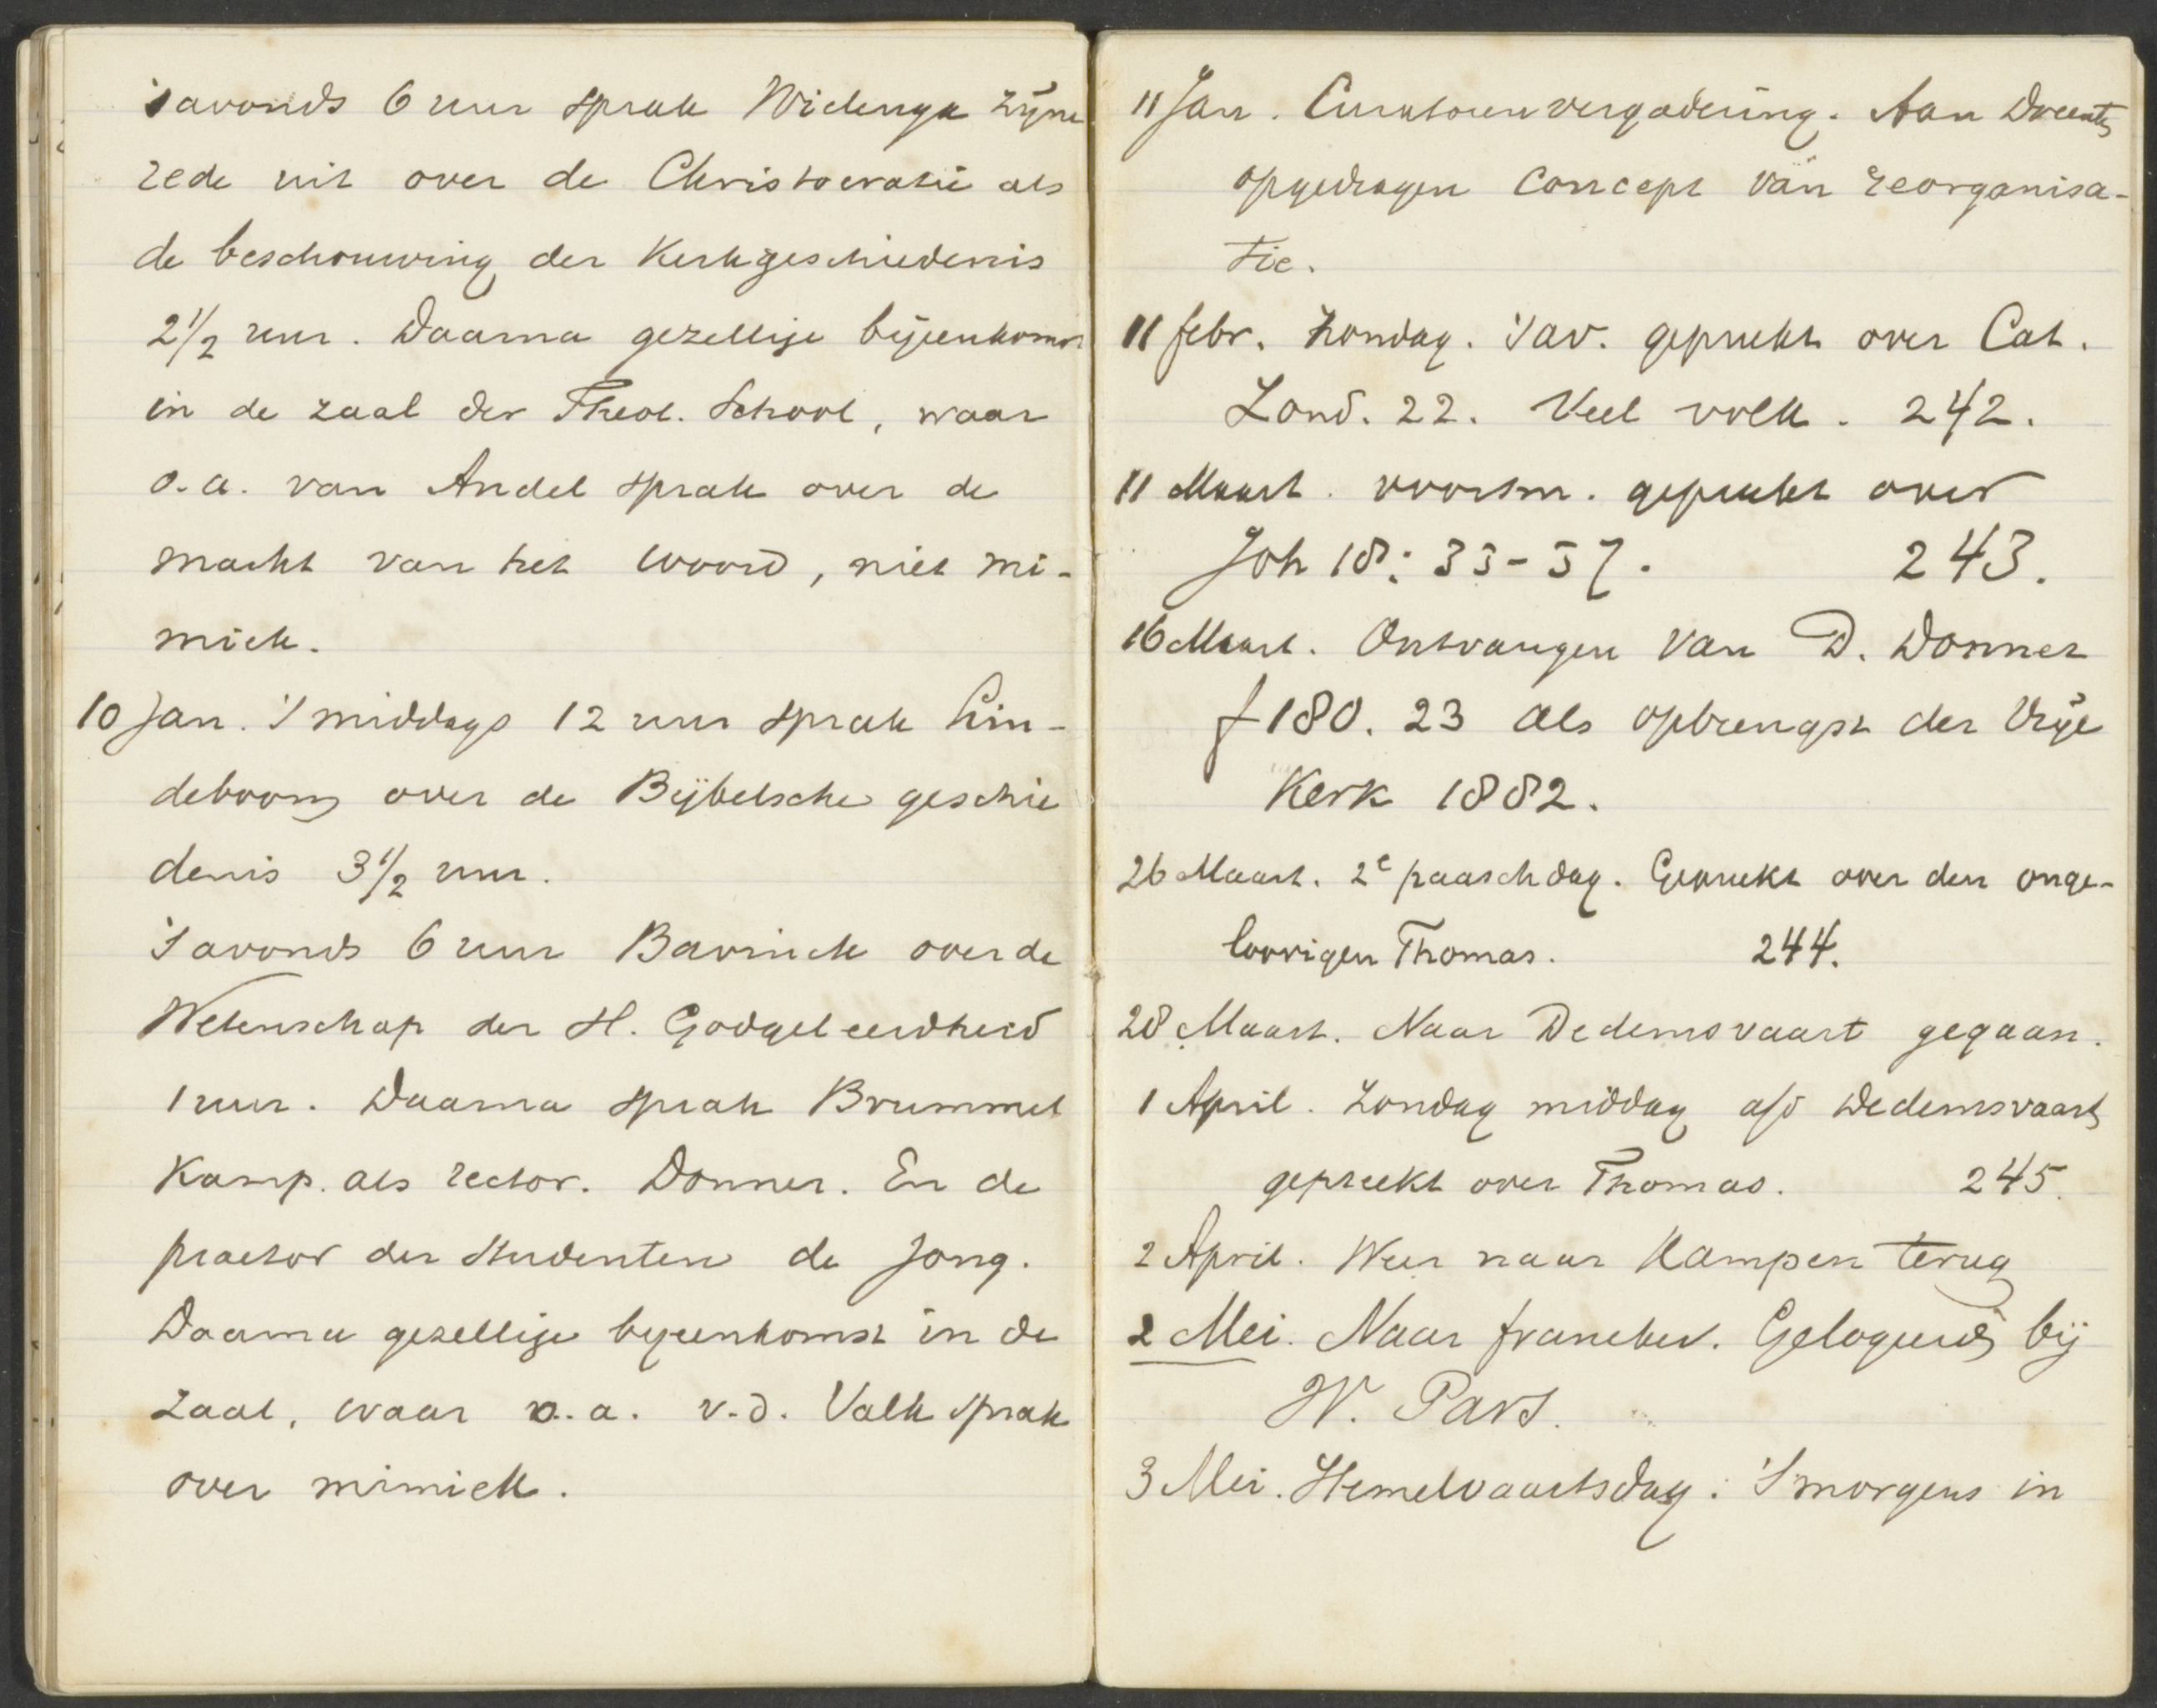 's avonds 6 uur sprak Wielenga zijne
rede uit over de Christocratie als
de beschouwing der Kerkgeschiedenis
2 1/2 uur. Daarna gezellige bijeenkomst
in de zaal der Theol. School, waar
o.a. van Andel sprak over de
macht van het woord, niet mi-
miek.
10 Jan. 's middags 12 uur sprak Lin-
deboom over de Bijbelsche geschie
denis 3 1/2 uur.
's avonds 6 uur Bavinck over de
Wetenschap der H. Godgeleerdheid
1 uur. Daarna sprak Brummel
Kamp. als rector. Donner. En de
praetor der studenten de Jong.
Daarna gezellige bijeenkomst in de
zaal, waar o.a. v.d. Valk sprak
over mimiek.
11 Jan. Curatorenvergadering. Aan Docenten
opgedragen concept van reorganisa-
tie.
11 febr. Zondag. 's av. gepreekt over Cat.
Zond. 22. Veel volk. 242.
11 Maart. voorm. gepreekt over
Joh 18: 33-37. 243.
16 Maart. Ontvangen van D. Donner
f 180.23 als opbrengst der Vrije
Kerk 1882.
26 Maart. 2e paaschdag. Gepreekt over den onge-
loovigen Thomas. 244.
28 Maart. Naar Dedemsvaart gegaan.
1 April. Zondag middag a/d Dedemsvaart
gepreekt over Thomas. 245.
2 April. Weer naar Kampen terug
2 Mei. Naar Franeker. Gelogeerd bij
W. Pars.
3 Mei. Hemelvaartsdag. 's morgens in